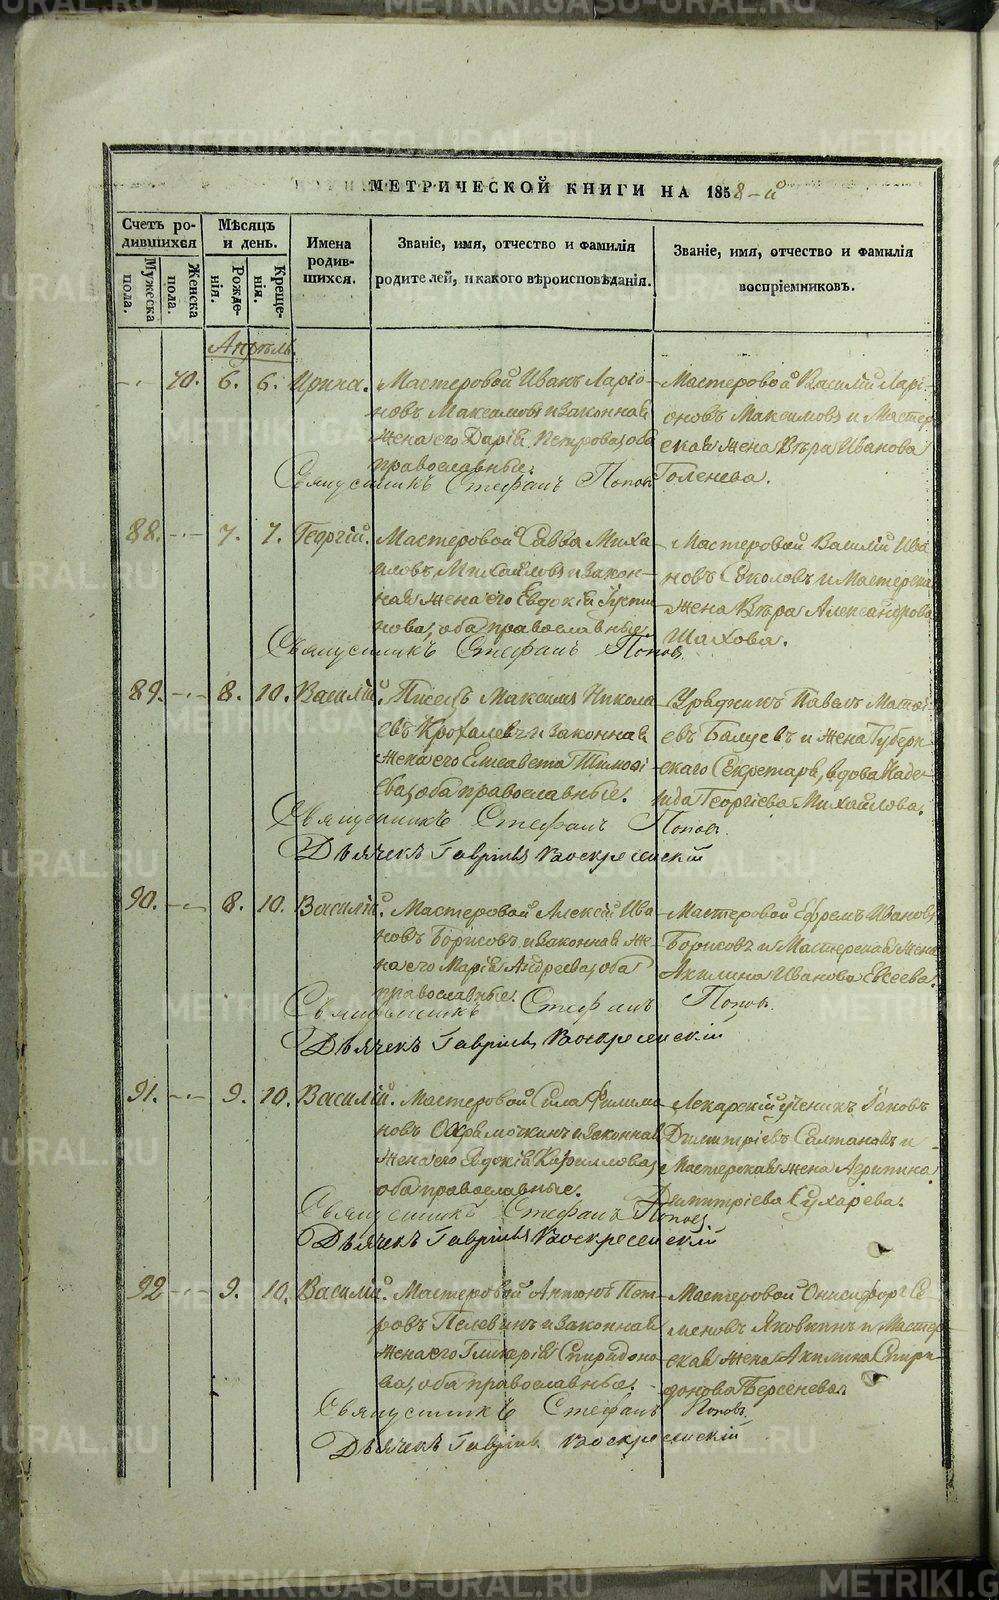 МЕТРИЧЕСКОЙ КНИГИ НА 1858-й
Счетъ ро-
дившихся
Мѣсяцъ
и день.
Имена
родив-
шихся.
Званіе, имя, отчество и фамилія
родителей, и какого вѣроисповѣданія.
Званіе, имя, отчество и фамилія
воспріемниковъ.
Мужеска
пола.
Женска
пола.
Рожде-
нія.
Креще-
нія.
Апрѣль.
70. 6. 6. Ирина. Мастеровой Иванъ Ларіо-
новъ Максимовъ и законная
жена его Дарія Петрова, оба
православные.
Мастеровой Василій Ларі-
оновъ Максимовъ и Мастер-
ская жена Вѣра Иванова
Голенева.
Священникъ Стефанъ Поповъ
88. 7. 7. Георгій. Мастеровой Савва Миха
иловъ Михайловъ и закон-
ная жена его Евдокія Густи
нова, оба православные.
Мастеровой Василій Ива
новъ Соколовъ и Мастерская
жена Вѣра Александрова
Шахова.
Священникъ Стефанъ Поповъ
89. 8. 10. Василій. Писецъ Максимъ Никола
евъ Крохалевъ и законная
жена его Елисавета Тимофѣ
ева, оба православные.
Урядникъ Павелъ Матѳѣ
евъ Балуевъ и жена Губерн-
скаго Секретаря, вдова Наде-
жда Георгіева Михайлова.
Священникъ Стефанъ Поповъ
Дьячекъ Гавріилъ Воскресенскій
90. 8. 10. Василій. Мастеровой Алексій Ива
новъ Борисовъ и законная же-
на его Марія Андреева, оба
православные.
Мастеровой Ефремъ Ивановъ
Борисовъ и Мастерская жена
Акилина Иванова Евсеева.
Священникъ Стефанъ Поповъ
Дьячекъ Гавріилъ Воскресенскій
91. 9. 10. Василій. Мастеровой Сила Филимо
новъ Охрямочкинъ и законная
жена его Евдокія Кириллова,
оба православные.
Лекарскій ученикъ Іаковъ
Димитріевъ Салтановъ и
Мастерская жена Агрипина
Димитріева Сухарева.
Священникъ Стефанъ Поповъ
Дьячекъ Гавріилъ Воскресенскій
92 9. 10. Василій. Мастеровой Антонъ Пет-
ровъ Пелевинъ и законная
жена его Гликерія Спиридоно-
ва, оба православные.
Мастеровой Онисифоръ Се-
меновъ Яковкинъ и Мастер-
ская жена Акилина Спири-
донова Берсенева.
Священникъ Стефанъ Поповъ
Дьячекъ Гавріилъ Воскресенскій
METRIKI.GASO-URAL.RU